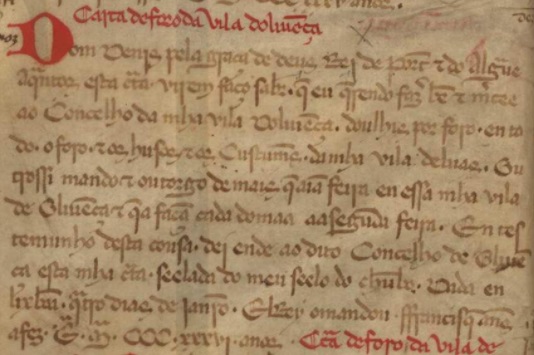 Carta de foro da vila dolivẽça
Dom Denis pela graça de deus Rey de Port̃ ⁊ do Algũe
A quãtos esta cr̃ta virem faço saber q̃ eu q̃rendo faz̃ bẽ ⁊ m̃cee
ao Concelho da mha vila Dolivẽca. doulhis por foro. en to
do. o foro. ⁊ os husos. ⁊ os Custumẽs. da mha vila deluas. Ou
trossi mando ⁊ outorgo de mais q̃ aiã feira en essa mha vila
de Oliuẽca ⁊ q̃ a façã cada domaa aa segũda feira. En tes
temunho desta cousa. dei ende ao dito Concelho de Oliuẽ
ca esta mha cr̃ta. seelada do meu seelo do chũbo. Dada en
lixbõa. q̃tro dias de Janro. ElRey o mandou. ffrancisq̃ anes
a fez. E. M. CCC. xxxvj. anos. Cr̃ta de foro da vila de